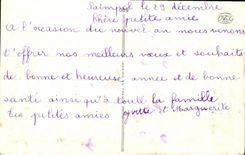 Paimpol le 29 décembre
Chère petite amie
A l'occasion du nouvel an nous venons
t'offrir nos meilleurs vœux et souhaits
de bonne et heureuse année et de bonne
santé ainsi qu'à toute la famille
tes petites amies Yvette et Marguerite